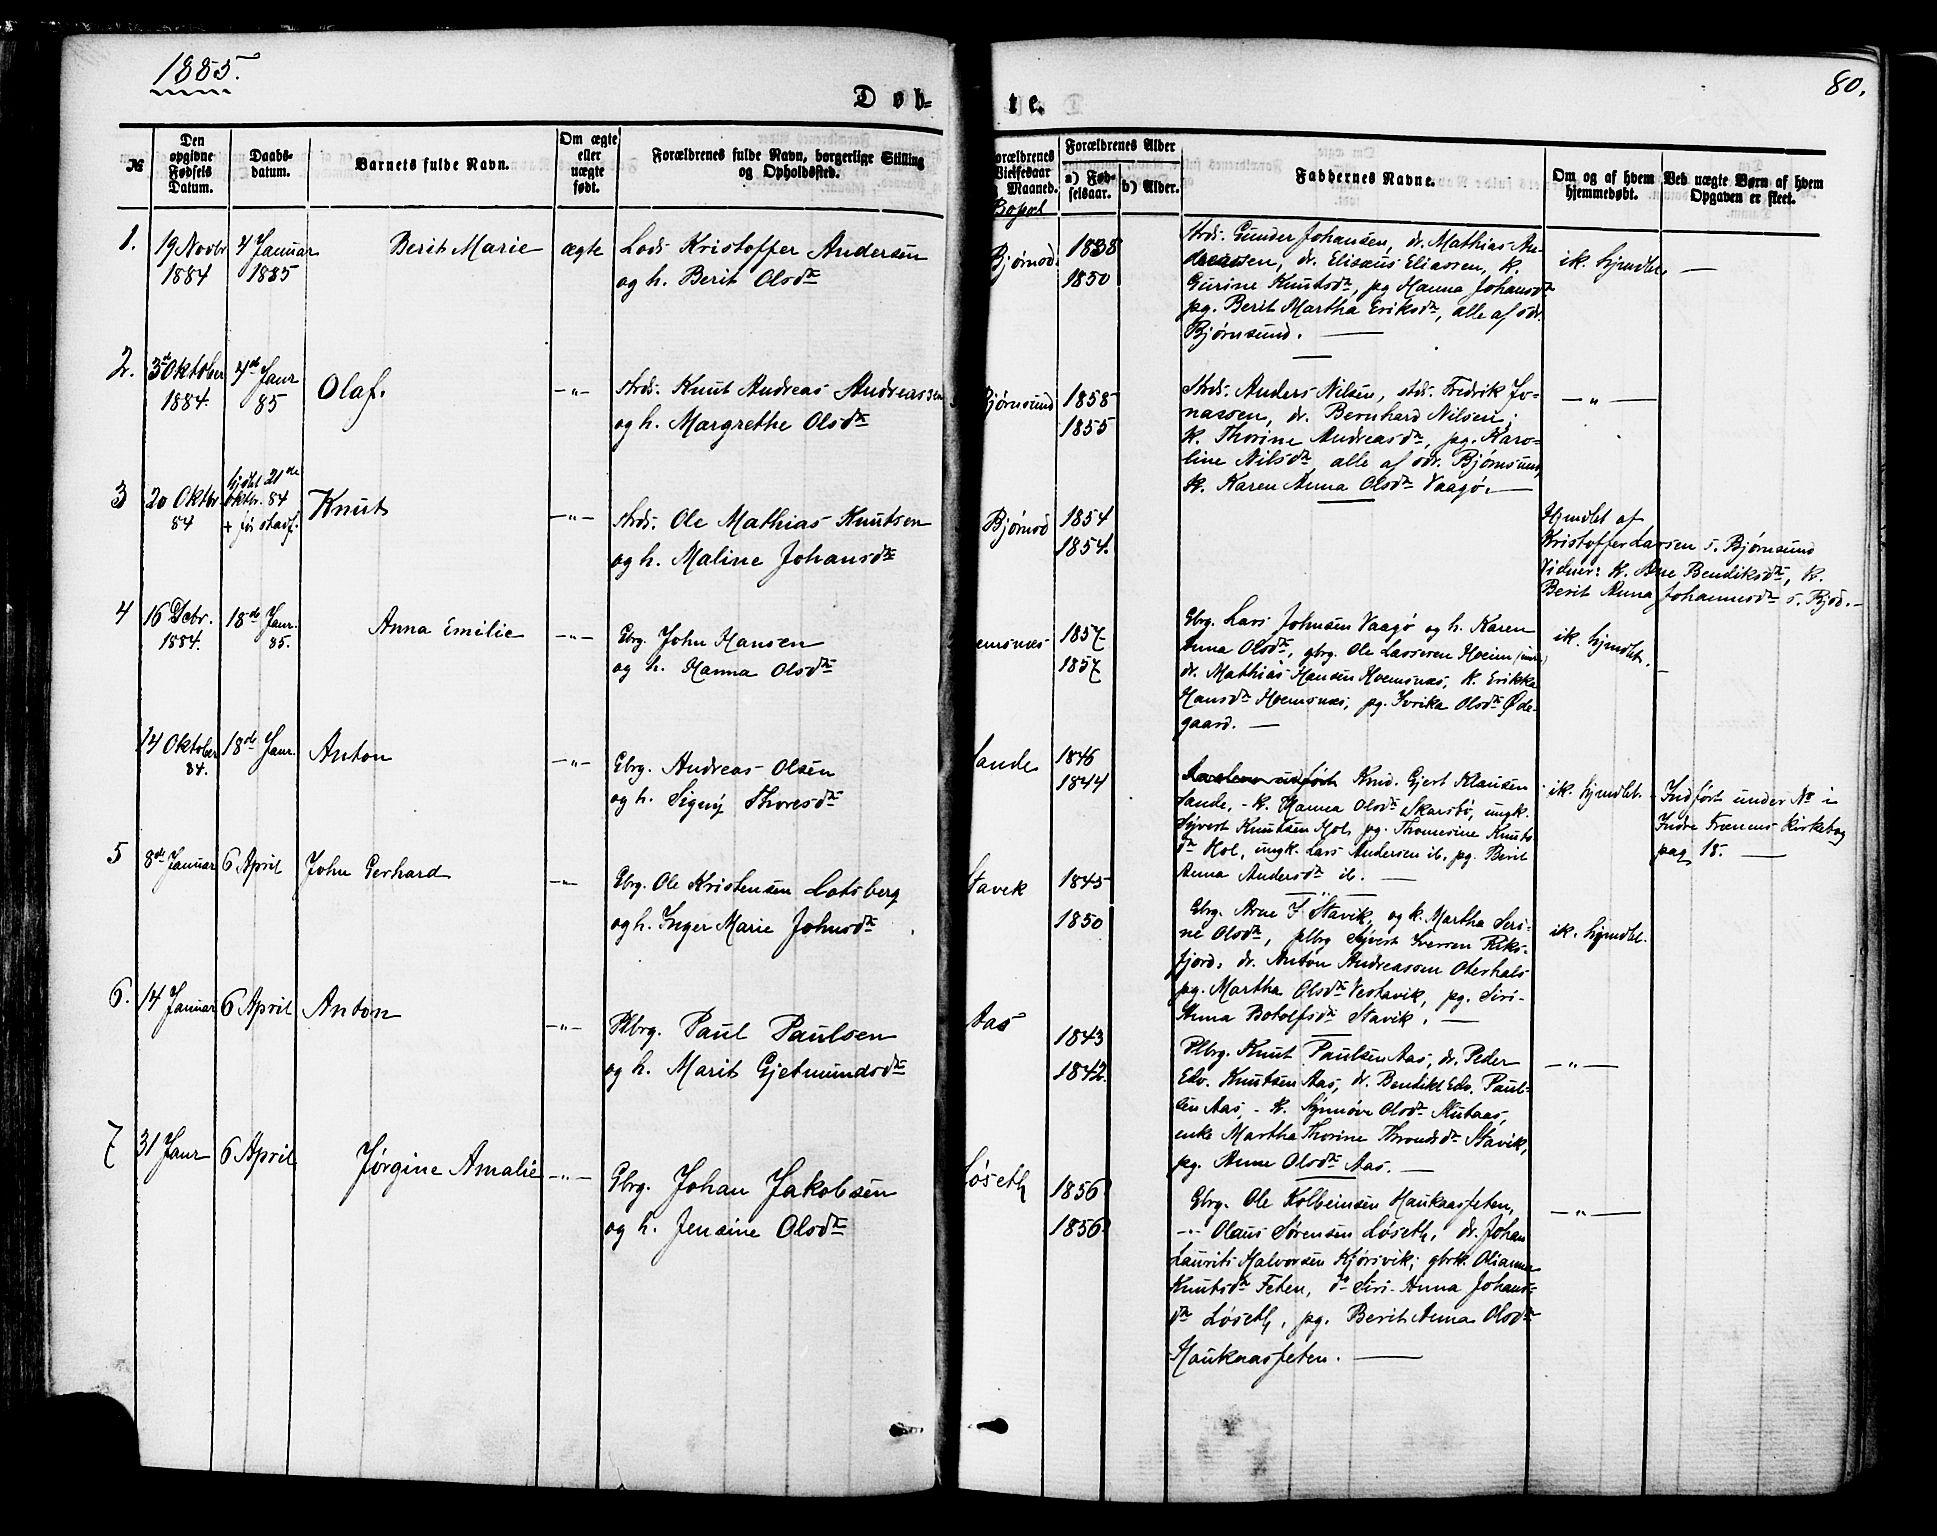 1885.
80.
Døb-
te.
№
Den opgivne Fødsels Datum.
Daabs-datum.
Barnets fulde Navn.
Om ægte eller uægte født.
Forældrenes fulde Navn, borgerlige Stilling og Opholdssted.
Forældrenes Vielsesaar Maaned.
Bopæl
Forældrenes Alder
a) Fødselsaar.
b) Alder.
Faddernes Navne.
Om og af hvem hjemmedøbt.
Ved uægte Børn af hvem Opgaven er skeet.
1.
19 Novbr 1884
4 Januar 1885
Berit Marie
ægte
Lods Kristoffer Andersen
og h. Berit Olsdr
Bjørnsd.
1838
1850
Strds. Gunder Johansen, dr. Mathias An-
dreassen, dr. Elisæus Eliassen, k.
Gurine Knutsdr, pg Hanna Johansdr
pg. Berit Martha Eriksdr, alle af odr.
Bjørnsund. —
ik. hjmdbt. —
2.
3die Oktober 1884.
4de Janr 85
Olaf.
—"—
Strds. Knut Andreas Andreassen
og h. Margrethe Olsdr
Bjørnsund
1858
1855
Strds. Anders Nilsen, strds. Fredrik Jo-
nassen, dr. Bernhard Nilsen;
k. Thorine Andreasdr, pg. Karo-
line Nilsdr alle af odr. Bjørnsund,
k. Karen Anna Olsdr Vaagø. —
—"—
3
20 Oktbr 84
hjdbt 21de Oktbr. 84
Knut
—"—
Strds. Ole Mathias Knutsen
og h. Maline Johansdr
Bjørnsd
1854
1854.
Hjmdbt af
Kristoffer Larsen s. Bjørnsund
Vidner: k. Ane Bendiksdr, k.
Berit Anna Johannesdr s. Bjsd. —
4
16 Decbr. 1884.
18de Janr. 85.
Anna Emilie
—"—
Gbrg. John Hansen
og h. Hanna Olsdr
emsnæs
1857
1857
Gbrg. Lars Johnsen Vaagø og h. Karen
Anna Olsdr, gbrg. Ole Larssen Hoeim
dr. Mathias Hansen Hoemsnæs, k. Erikka
Hansdr Hoemsnæs, pg. Ivrika Olsdr Øde-
gaard. —
ik. hjmdbt. —
14 Oktober 84.
18de Janr.
Anton
—"—
Gbrg. Andreas Olsen
og h. Signÿ Thoresdr
Sande
1846
1844
Knud Gjert Klausen
Sande, - k. Hanna Olsdr Skarsbø, ungk.
Syvert Knutsen Hol, pg. Thomesine Knuts-
dr Hol, ungk. Lars Andersen ib, pg. Berit
Anna Andersdr ib. —
ik. hjmdbt. —
Indført under № i
Indre Frænens Kirkebog
pag 15. —
5
8de Januar
6 April
John Gerhard
—"—
Gbrg. Ole Kristensen Lotsberg
og h. Inger Marie Johnsdr
Stavik
1845
1850
Gbrg. Arne I. Stavik, og k. Martha Seri-
ne Olsdr, plbrg Syvert Iversen Riks-
fjord; dr. Anton Andreassen Oterhals
pg. Martha Olsdr Vestavik, pg. Siri-
Anna Botolfsdr Stavik. —
ik. hjmdbt.
6.
14 Januar
6 April
Anton
—"—
Plbrg. Paul Paulsen
og h. Marit Gjetmundsdr
Aas
1843
1842.
Plbrg. Knut Paulsen Aas, dr. Peder
Edv. Knutsen Aas, dr. Bendikt Edv. Paul-
sen Aas, - k. Synnøve Olsdr Skutaas,
enke Martha Thorine Throndsdr Stavik,
pg. Anne Olsdr Aas. —
—"—
7
31 Janr
6 April
Jørgine Amalie
—"—
Gbrg. Johan Jakobsen
og h. Jensine Olsdr
Løseth
1856
1856.
Gbrg. Ole Kolbeinsen Haukaasfeten,
—"— Olaus Sørensen Løseth, dr. Johan
Laurits Halvorsen Kjørsvik; gbrk. Olianna
Knutsdr Feten, do Siri-Anna Johans-
dr Løseth, pg. Berit Anna Olsdr
Haukaasfeten. —
—"—